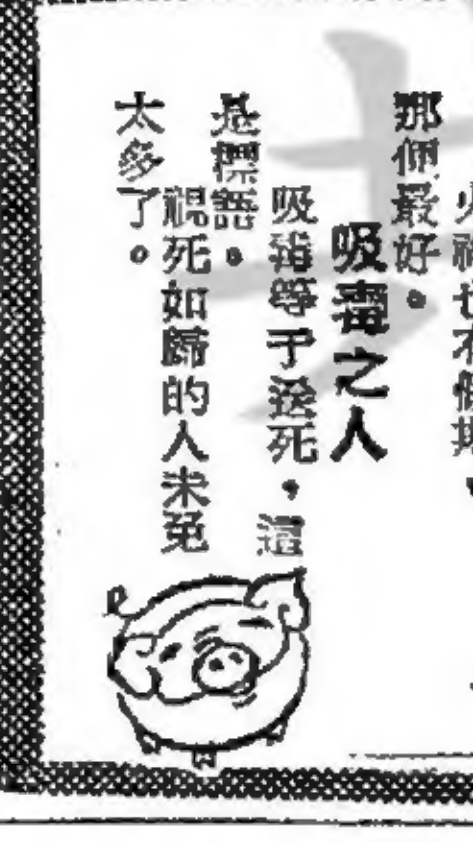 也不
那個最好。
吸毒之人
吸毒等于送死，這
是標語。
視死如歸的人未免
太多了。